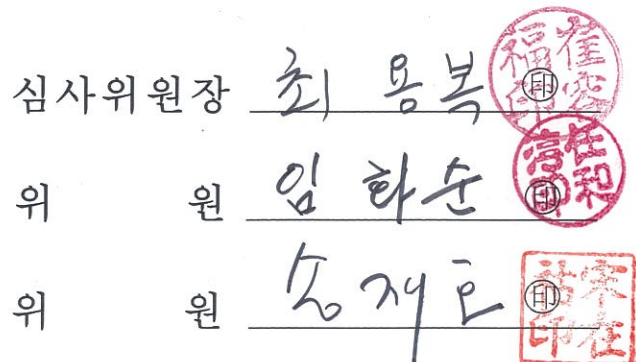 심사위원장 최 용 복 ㊞
위 원 임 화 순 ㊞
위 원 송 재 호 ㊞